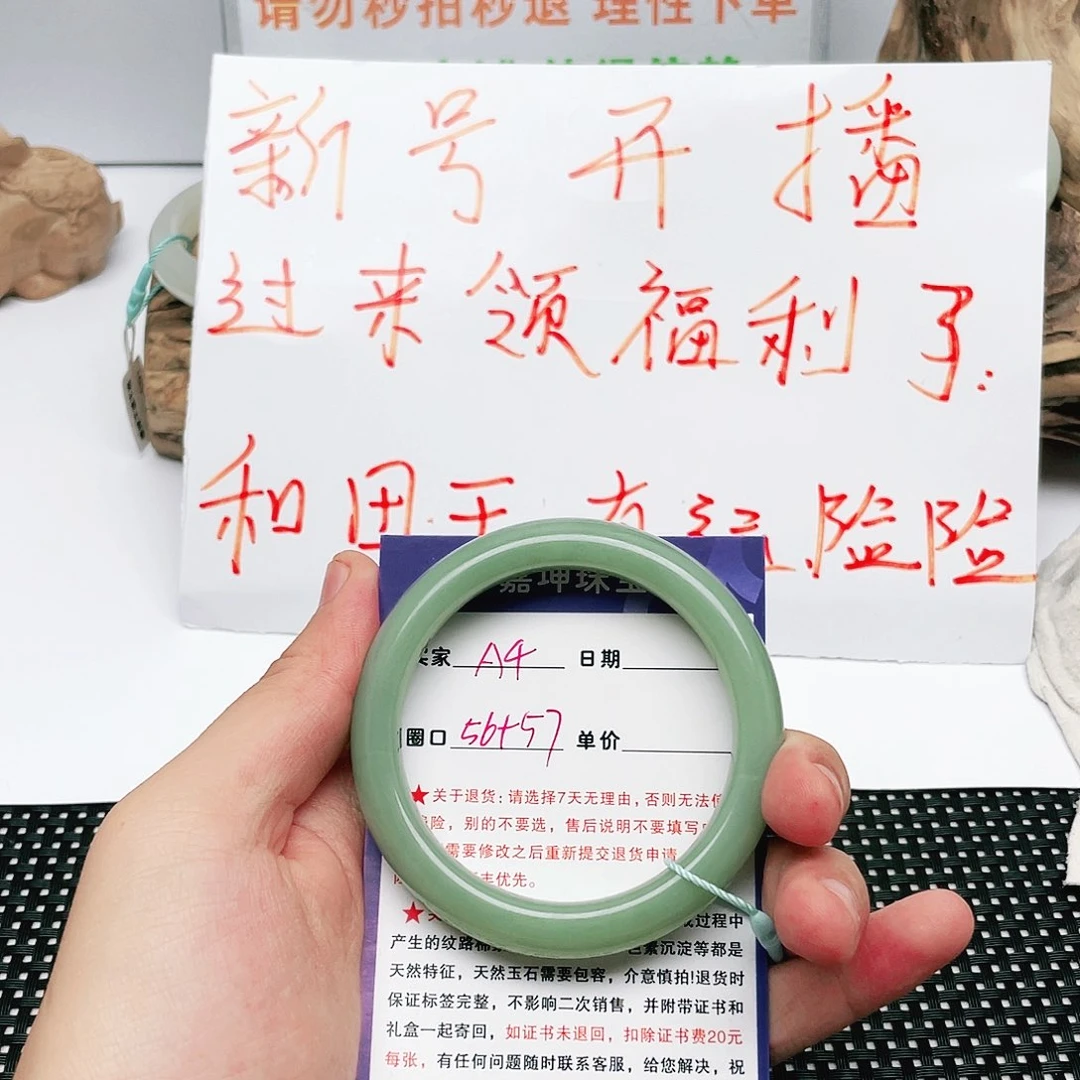 请勿秒拍秒退 理性下单
新号开播
过来领福利了:
和田玉 有运险险
嘉坤珠宝
买家 A4 日期
圈口 56+57 单价
★关于退货:请选择7天无理由,否则无法
险,别的不要选,售后说明不要填写
需要修改之后重新提交退货申请
优先。
★
过程中
产生的纹路 色素沉淀等都是
天然特征,天然玉石需要包容,介意慎拍!退货时
保证标签完整,不影响二次销售,并附带证书和
礼盒一起寄回,如证书未退回,扣除证书费20元
每张,有任何问题随时联系客服,给您解决,祝